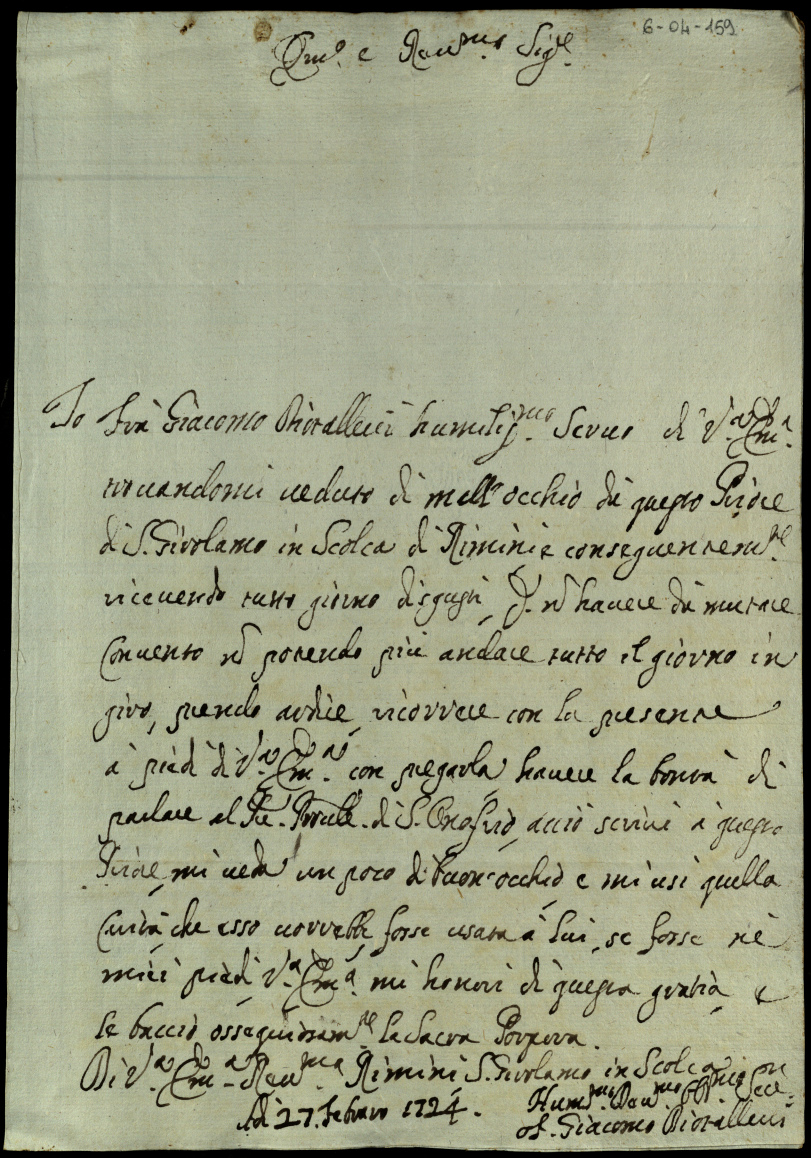 6-04-159
Em.o e Reu.mo Sig.re
Io Frà Giacomo Bioralleui humiliss.mo Seruo di V.a Em.a
trouandomi ueduto di mall'occhio da questo Priore
di S. Girolamo in Scolca di Rimini e conseguentem.te
riceuendo tutto giorno disgusti, e p. nõ hauere da mutare
Conuento nõ potendo più andare tutto il giorno in
giro, prendo ardire, ricorrere con la presente
à piedi di V.a Em.a con pregarla hauere la bontà di
parlare al P.re Prõule. di S. Onofrio, acciò scriui à questo
Priore, mi ueda un poco di buon'occhio e mi usi quella
Carità che esso uorrebbe fosse usata à lui, se fosse nè
miei piedi, V.a Em.a mi honori di questa gratia, e
le baccio ossequiosam.te la Sacra Porpora.
Di V.a Em.a Reu.ma Rimini S. Girolamo in Scolca
Adi 27. Febraro 1724.
Hum.mo Deu.mo
F. Giacomo Bioralleui